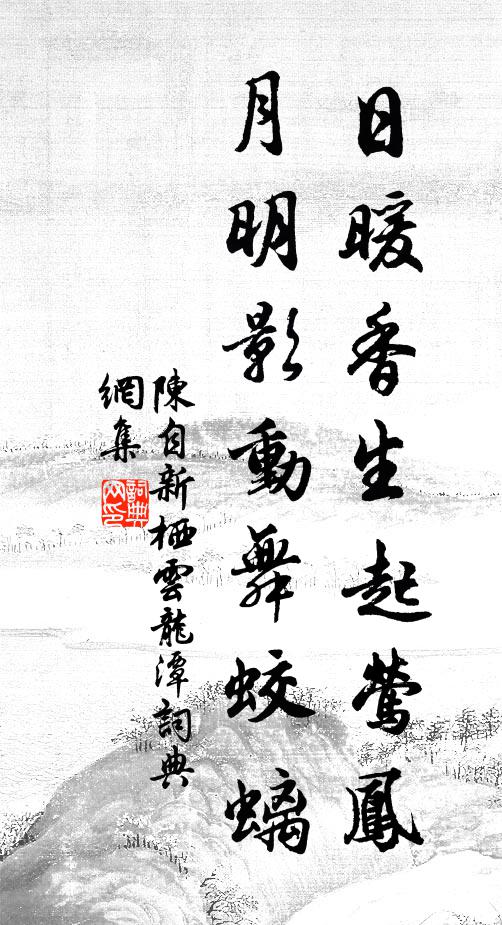 日暖香生起鶯鳳
月明影動舞蛟螭
陳自新栖雲龍潭詞典
網集
詞典
网印